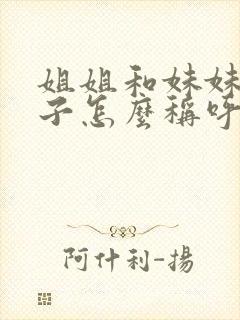 姐姐和妹妹
子怎麼稱呼
阿什利-揚